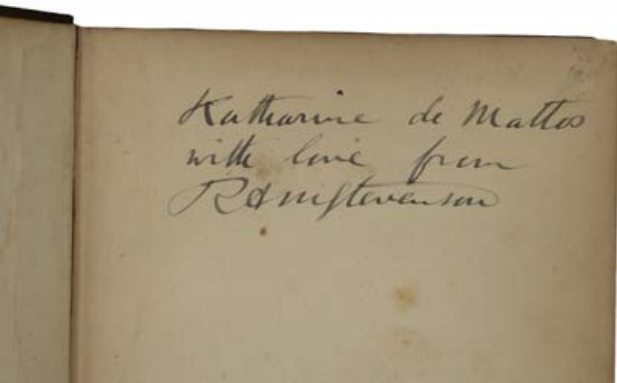 Katharine de Mattos
with love from
RAMStevenson